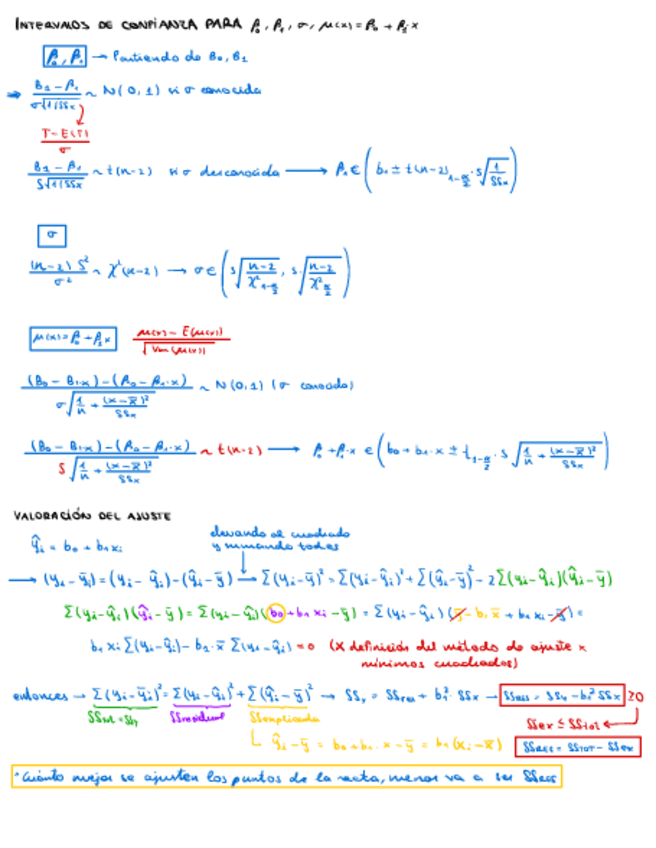 INTERVALOS DE CONFIANZA PARA β₀, β₁, σ, μ(x) = β₀ + β₁·x
β₀, β₁ → Partiendo de B₀, B₁
→ (B₁ − β₁)/(σ√(1/SSx)) ~ N(0,1) si σ conocida
(T − E(T))/σ
(B₁ − β₁)/(S√(1/SSx)) ~ t(n−2) si σ desconocida → β₁ ∈ (b₁ ± t(n−2)₁₋α/₂ · s√(1/SSx))
σ
(n−2)S²/σ² ~ χ²(n−2) → σ ∈ (s√((n−2)/χ²₁₋α/₂), s√((n−2)/χ²α/₂))
μ(x) = β₀ + β₁x (μ(x) − E(μ(x)))/√(Var(μ(x)))
((B₀ − B₁·x) − (β₀ − β₁·x))/(σ√(1/n + (x − x̄)²/SSx)) ~ N(0,1) (σ conocida)
((B₀ − B₁·x) − (β₀ − β₁·x))/(S√(1/n + (x − x̄)²/SSx)) ~ t(n−2) → β₀ + β₁·x ∈ (b₀ + b₁·x ± t₁₋α/₂ · s√(1/n + (x − x̄)²/SSx))
VALORACIÓN DEL AJUSTE
ŷᵢ = b₀ + b₁xᵢ
elevando al cuadrado
y sumando todos
→ (yᵢ − ȳᵢ) = (yᵢ − ŷᵢ) − (ŷᵢ − ȳ) → Σ(yᵢ − ȳ)² = Σ(yᵢ − ŷᵢ)² + Σ(ŷᵢ − ȳ)² − 2Σ(yᵢ − ŷᵢ)(ŷᵢ − ȳ)
Σ(yᵢ − ŷᵢ)(ŷᵢ − ȳ) = Σ(yᵢ − ŷᵢ)(b₀ + b₁xᵢ − ȳ) = Σ(yᵢ − ŷᵢ)(ȳ − b₁x̄ + b₁xᵢ − ȳ) =
b₁xᵢ Σ(yᵢ − ŷᵢ) − b₁·x̄ Σ(yᵢ − ŷᵢ) = 0 (x definición del método de ajuste x
mínimos cuadrados)
entonces → Σ(yᵢ − ȳᵢ)² = Σ(yᵢ − ŷᵢ)² + Σ(ŷᵢ − ȳ)² → SSy = SSres + b₁²·SSx → SSres = SSy − b₁²SSx ≥ 0
SStot = SSy SSresidual SSexplicada SSex ≤ SStot
ŷᵢ − ȳ = b₀ + b₁·x − ȳ = b₁(xᵢ − x̄) SSres = SStot − SSex
· Cuanto mejor se ajusten los puntos de la recta, menor va a ser SSres